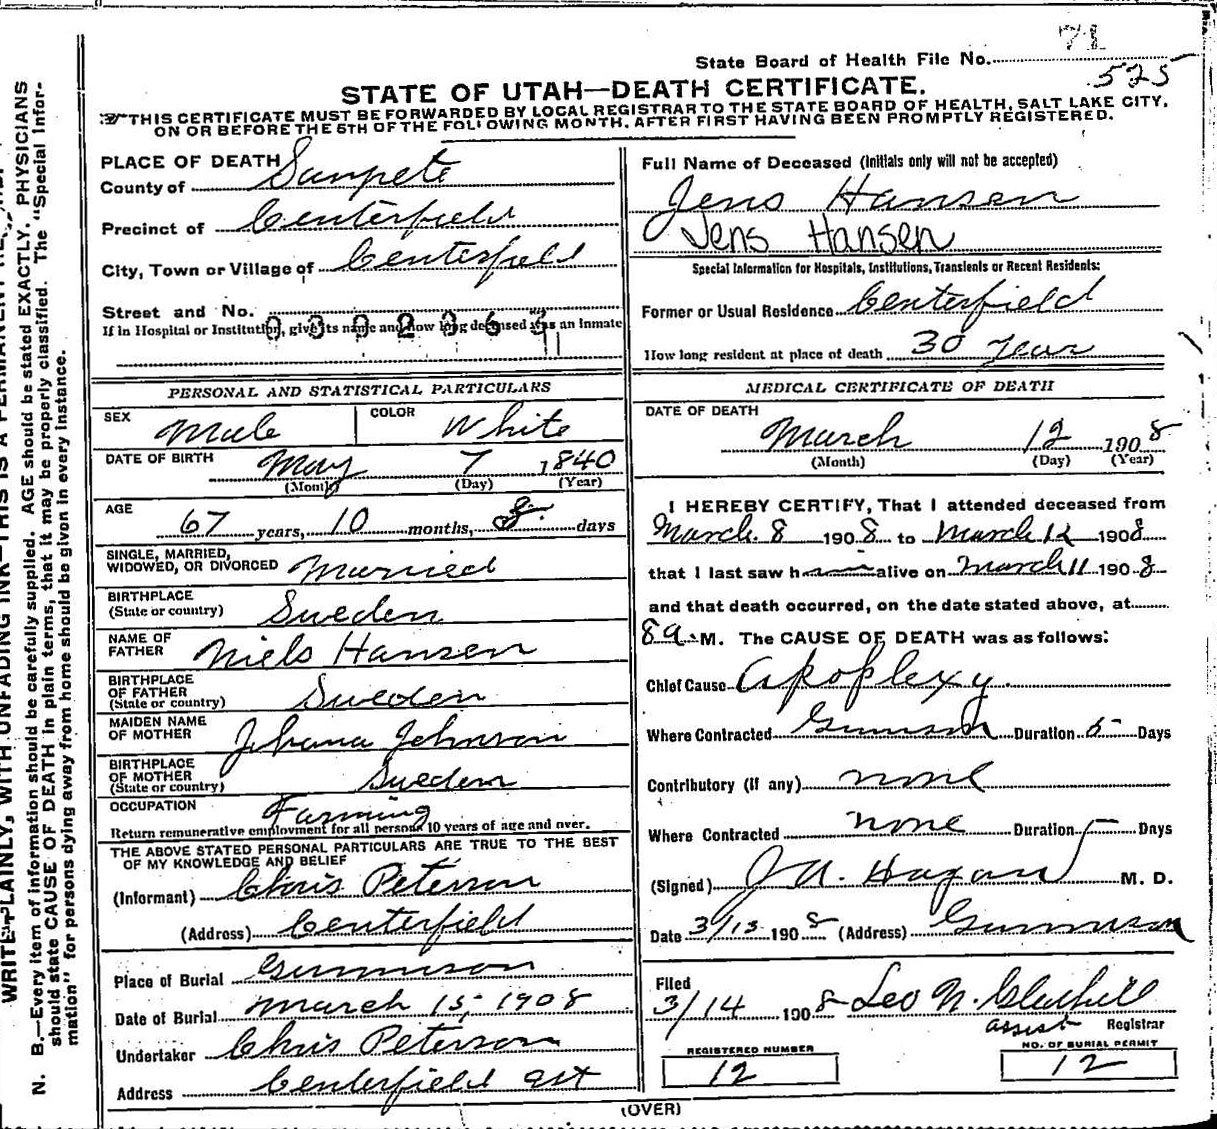 71
State Board of Health File No.
525
STATE OF UTAH—DEATH CERTIFICATE.
THIS CERTIFICATE MUST BE FORWARDED BY LOCAL REGISTRAR TO THE STATE BOARD OF HEALTH, SALT LAKE CITY,
ON OR BEFORE THE 5TH OF THE FOLLOWING MONTH, AFTER FIRST HAVING BEEN PROMPTLY REGISTERED.
PLACE OF DEATH
County of Sanpete
Precinct of Centerfield
City, Town or Village of Centerfield
Street and No.
If in Hospital or Institution, give its name and how long deceased was an Inmate
Full Name of Deceased (Initials only will not be accepted)
Jens Hansen
Jens Hansen
Special Information for Hospitals, Institutions, Transients or Recent Residents:
Former or Usual Residence Centerfield
How long resident at place of death 30 year
PERSONAL AND STATISTICAL PARTICULARS
SEX Male COLOR White
DATE OF BIRTH May 7 1840
(Month) (Day) (Year)
AGE 67 years, 10 months, days
SINGLE, MARRIED,
WIDOWED, OR DIVORCED Married
BIRTHPLACE
(State or country) Sweden
NAME OF
FATHER Niels Hansen
BIRTHPLACE
OF FATHER
(State or country) Sweden
MAIDEN NAME
OF MOTHER Johana Johnson
BIRTHPLACE
OF MOTHER
(State or country) Sweden
OCCUPATION Farming
Return remunerative employment for all persons 10 years of age and over.
THE ABOVE STATED PERSONAL PARTICULARS ARE TRUE TO THE BEST
OF MY KNOWLEDGE AND BELIEF
(Informant) Chris Peterson
(Address) Centerfield
Place of Burial Gunnison
Date of Burial March 15, 1908
Undertaker Chris Peterson
Address Centerfield
MEDICAL CERTIFICATE OF DEATH
DATE OF DEATH
March 12 1908
(Month) (Day) (Year)
I HEREBY CERTIFY, That I attended deceased from
March 8 1908 to March 12 1908
that I last saw h alive on March 11 1908
and that death occurred, on the date stated above, at
8 a. M. The CAUSE OF DEATH was as follows:
Chief Cause Apoplexy
Where Contracted Gunnison Duration 5 Days
Contributory (if any) none
Where Contracted none Duration Days
(Signed) J A. Hagan M. D.
Date 3/13 1908 (Address) Gunnison
Filed
3/14 1908 Leo N.
assist Registrar
REGISTERED NUMBER
12
NO. OF BURIAL PERMIT
12
(OVER)
N. B.—Every item of information should be carefully supplied. AGE should be stated EXACTLY. PHYSICIANS
should state CAUSE OF DEATH in plain terms, that it may be properly classified. The "Special Infor-
mation" for persons dying away from home should be given in every instance.
WRITE PLAINLY, WITH UNFADING INK—THIS IS A PERMANENT